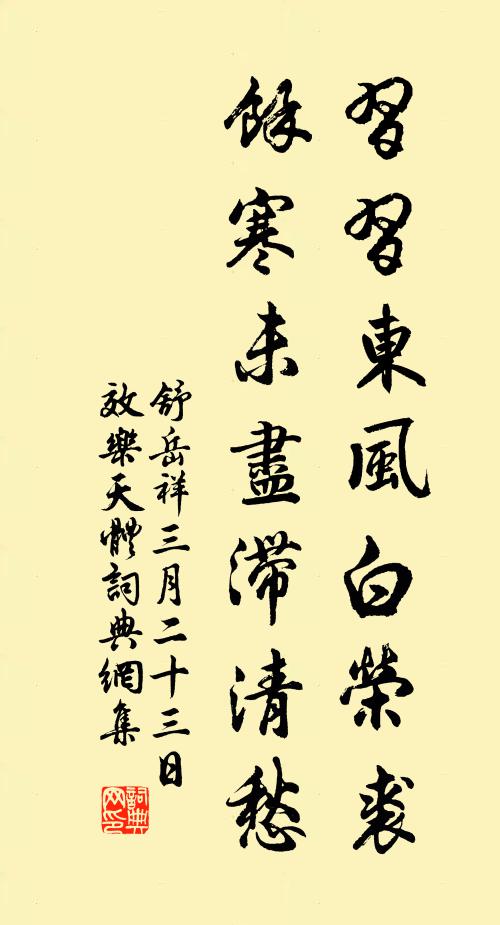 習習東風白榮裘
餘寒未盡滯清愁
舒岳祥三月二十三日
效樂天體詞典網集
詞典网印